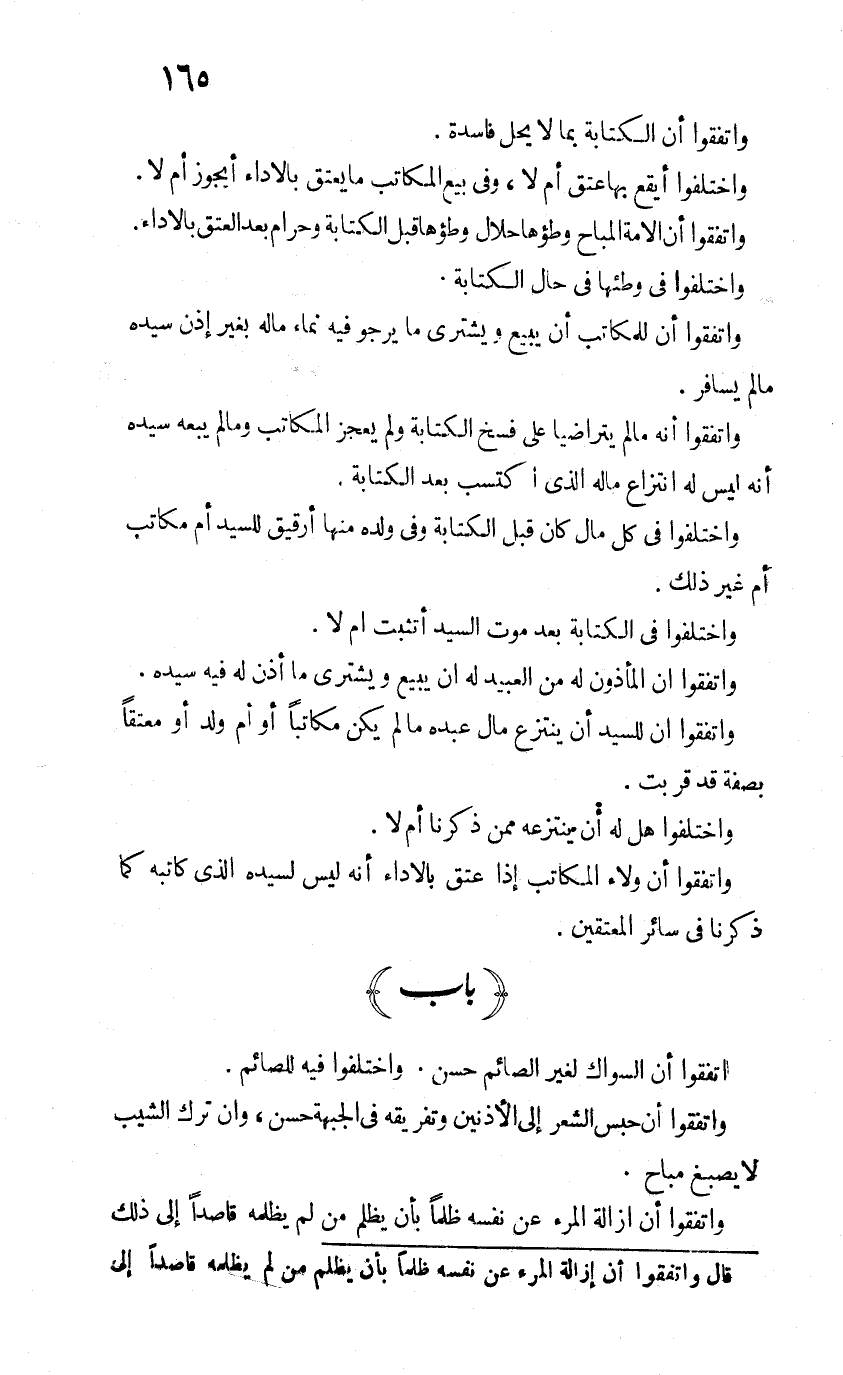 ١٦٥
واتفقوا أن الكتابة بما لا يحل فاسدة .
واختلفوا أيقع بها عتق أم لا ، وفى بيع المكاتب ما يعتق بالاداء أيجوز أم لا .
واتفقوا أن الامة المباح وطؤها حلال وطؤها قبل الكتابة وحرام بعد العتق بالاداء .
واختلفوا فى وطئها فى حال الكتابة .
واتفقوا أن للمكاتب أن يبيع ويشترى ما يرجو فيه نماء ماله بغير إذن سيده
مالم يسافر .
واتفقوا أنه مالم يتراضيا على فسخ الكتابة ولم يعجز المكاتب ومالم يبعه سيده
أنه ليس له انتزاع ماله الذى اكتسب بعد الكتابة .
واختلفوا فى كل مال كان قبل الكتابة وفى ولده منها أرقيق للسيد أم مكاتب
أم غير ذلك .
واختلفوا فى الكتابة بعد موت السيد أتثبت ام لا .
واتفقوا ان المأذون له من العبيد له ان يبيع ويشترى ما أذن له فيه سيده .
واتفقوا ان للسيد أن ينتزع مال عبده مالم يكن مكاتباً أو أم ولد أو معتقاً
بصفة قد قربت .
واختلفوا هل له أن ينتزعه ممن ذكرنا أم لا .
واتفقوا أن ولاء المكاتب إذا عتق بالاداء أنه ليس لسيده الذى كاتبه كما
ذكرنا فى سائر المعتقين .
﴿ باب ﴾
اتفقوا أن السواك لغير الصائم حسن . واختلفوا فيه للصائم .
واتفقوا أن حبس الشعر إلى الأذنين وتفريقه فى الجبهة حسن ، وان ترك الشيب
لا يصبغ مباح .
واتفقوا أن ازالة المرء عن نفسه ظلماً بأن يظلم من لم يظلمه قاصداً إلى ذلك
قال واتفقوا أن إزالة المرء عن نفسه ظلماً بأن يظلم من لم يظلمه قاصداً إلى